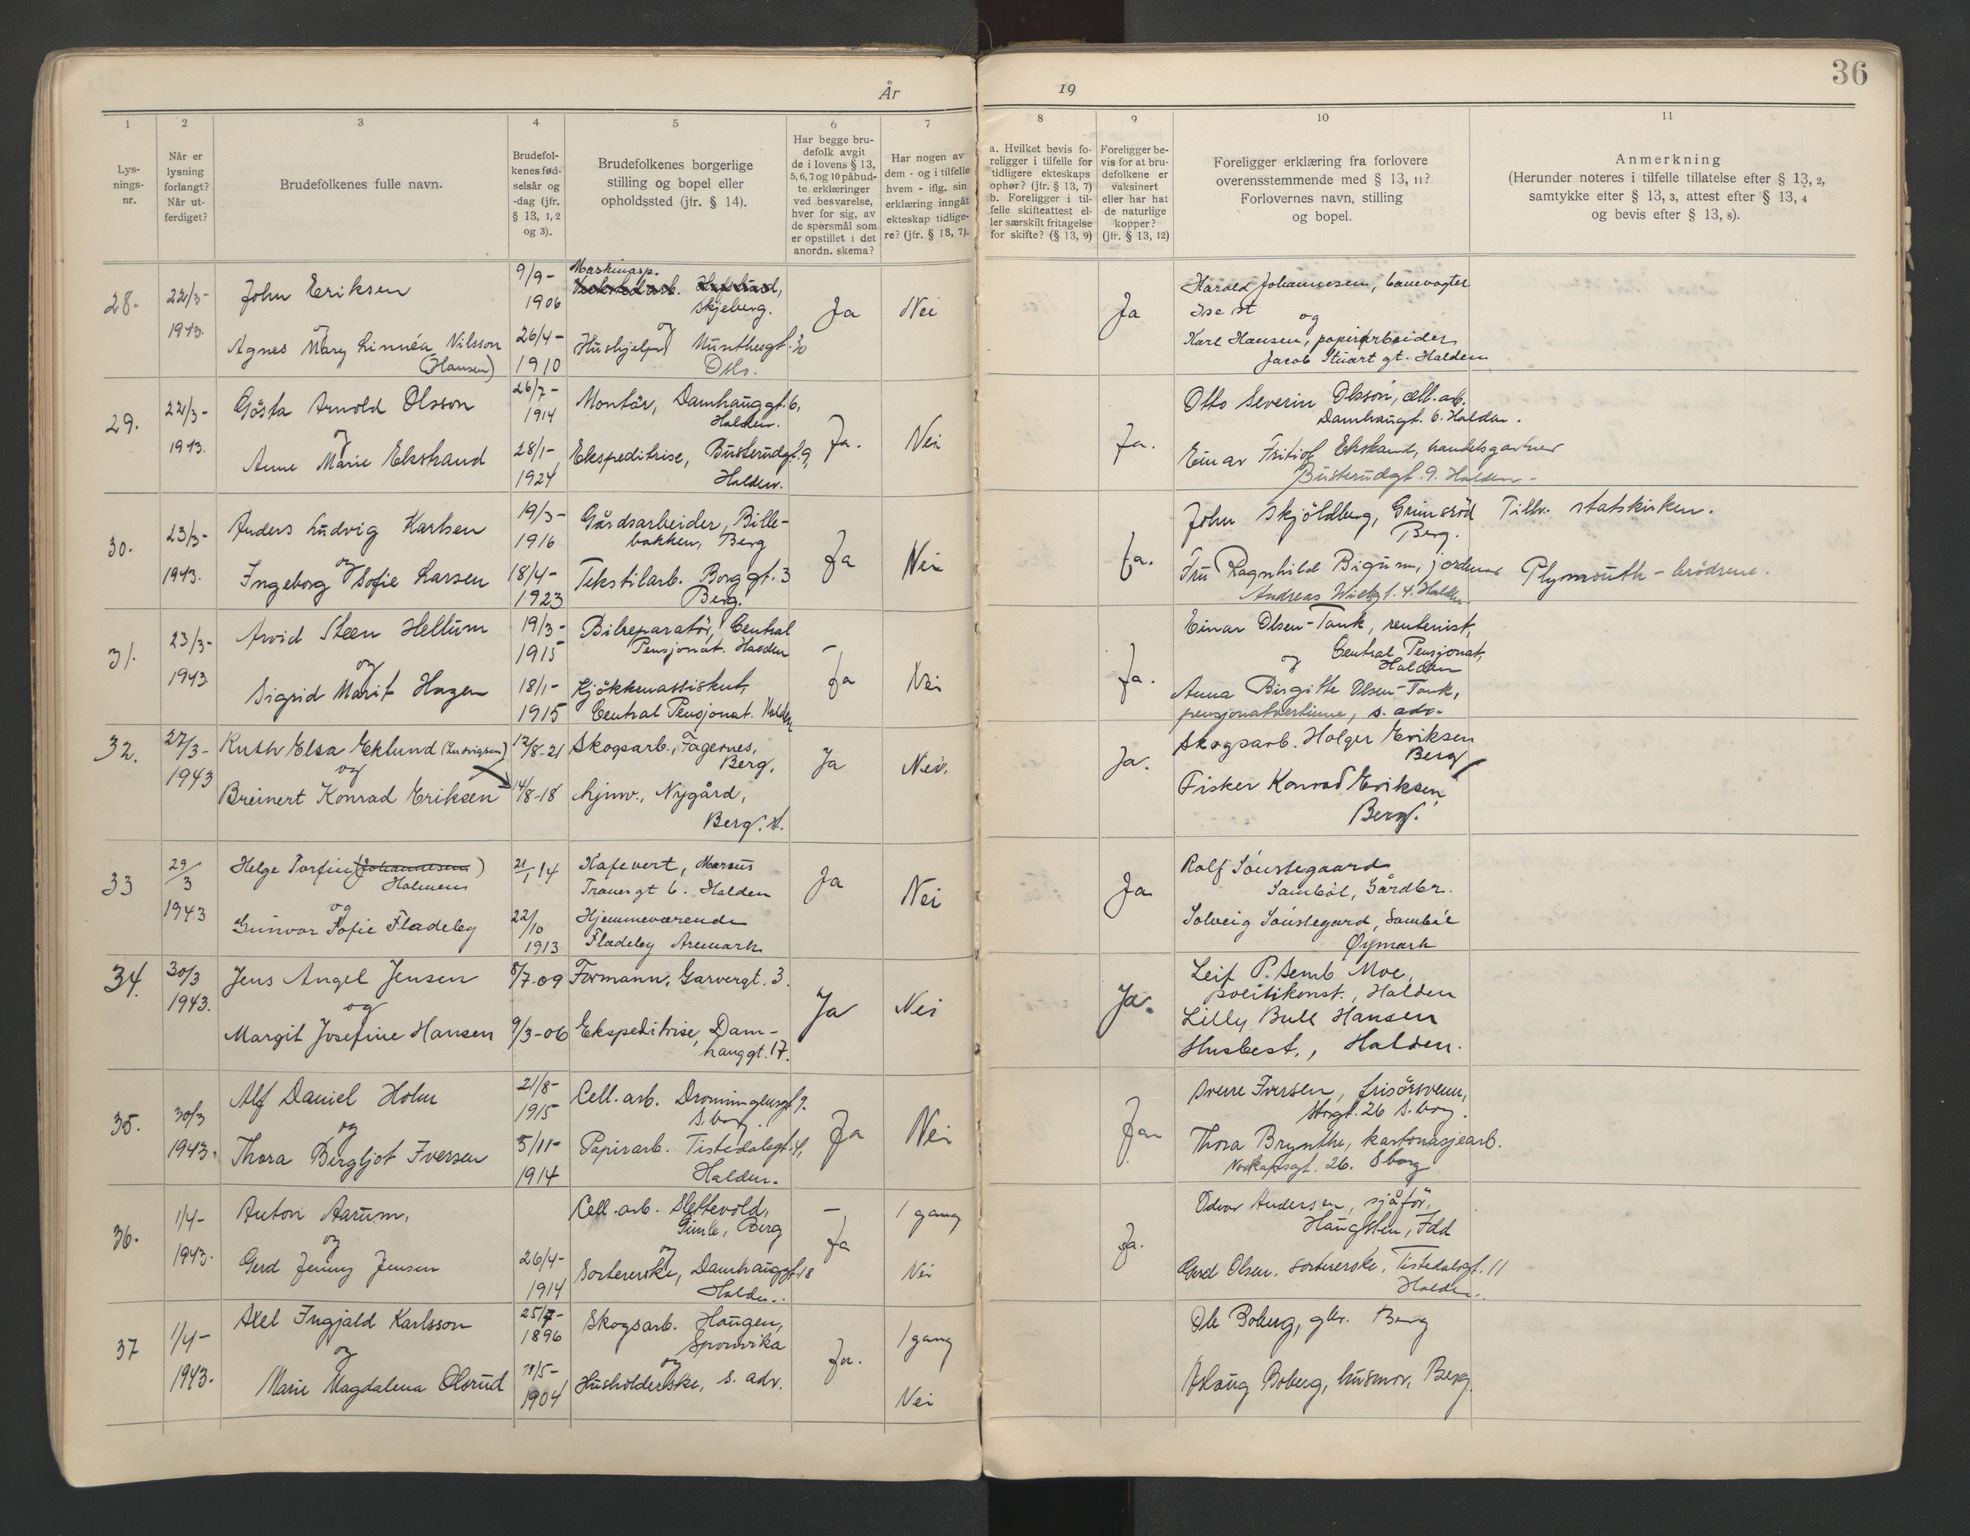 36
År
19
1
2
3
4
5
6
7
8
9
10
11
Lys-
nings-
nr.
Når er
lysning
forlangt?
Når ut-
ferdiget?
Brudefolkenes fulle navn.
Brudefol-
kenes fød-
selsår og
-dag (jfr.
§ 13, 1, 2
og 3).
Brudefolkenes borgerlige
stilling og bopel eller
opholdssted (jfr. § 14).
Har begge bru-
defolk avgit
de i lovens § 13,
5, 6, 7 og 10 påbud-
te erklæringer
ved besvarelse,
hver for sig, av
de spørsmål som
er opstillet i det
anordn. skema?
Har nogen av
dem - og i tilfelle
hvem - iflg. sin
erklæring inngåt
ekteskap tidlige-
re? (jfr. § 13, 7).
a. Hvilket bevis fo-
religger i tilfelle for
tidligere ekteskaps
ophør? (jfr. § 13, 7)
b. Foreligger i til-
felle skifteattest el-
ler særskilt fritagelse
for skifte? (§ 13, 9)
Foreligger be-
vis for at bru-
defolkene er
vaksinert
eller har hat
de naturlige
kopper?
(jfr. § 13, 12)
Foreligger erklæring fra forlovere
overensstemmende med § 13, 11?
Forlovernes navn, stilling
og bopel.
Anmerkning
(Herunder noteres i tilfelle tillatelse efter § 13, 2,
samtykke efter § 13, 3, attest efter § 13, 4
og bevis efter § 13, 8).
28.
22/3-
1943.
John Eriksen
og
Agnes Mary Linnéa Nilsson
(Hansen)
9/9-
1906
26/4-
1910
Maskinarp.
Skjeberg.
og
Hushjelp, Munthesgt. 30
Oslo.
Ja
Nei
Ja
Harald Johannesen, banevogter
Ise st
og
Karl Hansen, papirarbeider
Jacob Stuart gt. Halden
29.
22/3-
1943.
Gösta Arnold Olsson
og
Anne Marie Ekstrand
26/7-
1914
28/1-
1924
Montör, Damhauggt. 6,
Halden.
Ekspeditrise, Busterudgt. 9,
Halden.
Ja.
Nei
Ja.
Otto Severin Olsson, cell. arb.
Damhaugt. 6. Halden.
Einar Fritiof Ekstrand, handelsgartner
Busterudgt. 9. Halden-
30.
23/3-
1943.
Anders Ludvig Karlsen
og
Ingeborg Sofie Larsen
19/3-
1916
18/4-
1923
Gårdsarbeider, Bille-
bakken, Berg
Tekstilarb. Borggt. 3
Berg.
Ja
Nei
Ja.
John Skjöldberg, Grimsröd
Berg.
Fru Ragnhild Bigum, jordmor
Andreas Wielgt. 4. Halden
Tillr. statskirken.
Plymouth-brödrene.
31.
23/3-
1943
Arvid Steen Hellum
og
Sigrid Marit Hagen
19/3-
1915
18/1-
1915
Bilreparatör, Central
Pensjonat. Halden
Kjökkenassistent,
Central Pensjonat. Halden
Ja
Nei
Ja.
Einar Olsen-Tank, rentenist,
Central Pensjonat,
og Halden
Anna Birgitte Olsen-Tank,
pensjonatvertinne, s. adr.
32.
27/3-
1943
Ruth Elsa Eklund (Ludvigsen)
og
Breinert Konrad Eriksen
12/8-21
14/8-18
Skogsarb., Fagernes,
Berg.
hjmv., Nygård,
Berg. st.
Ja
Nei.
Ja.
Skogsarb. Holger Eriksen
Berg
Fisker Konrad Eriksen,
Berg.
33
29/3
1943
Helge Torfin (Johannesen)
Holmens
og
Gunvor Sofie Fladeby
21/1 14
22/10
1913
Kafevert, Marcus
Tranes gt 6. Halden
Hjemmeværende
Fladeby Aremark
Ja
Nei
Ja
Rolf Sönstegaard
Samböl, Gårdbr.
Solveig Sönstegard, Samböl
Øymark
34.
30/3
1943.
Jens Angel Jensen
og
Margit Josefine Hansen
8/7-09
9/3-06
Formann, Garvergt. 3.
Ekspeditrise, Dam-
hauggt. 17.
Ja
Nei
Ja.
Leif P. Semb Moe,
politikonst., Halden
Lilly Bull Hansen
Husbest., Halden.
35.
30/3
1943.
Alf Daniel Holm
og
Thora Bergljot Iversen
21/8-
1915
5/11-
1914
Cell. arb. Dronningensgt 9.
S. borg.
Papirarb. Tistedalsgt. 4,
Halden.
Ja
Nei
Ja
Sverre Iversen, frisörsvenn,
Storgt. 26 S. borg.
Thora Brynthe, kartonasjearb.
26. S borg
36.
1/4-
1943.
Anton Aarum,
og
Gerd Jenny Jensen
26/4-
1914
Cell. arb. Slettevold,
Gimle, Berg
og
Sortererske, Damhauggt. 18
Halden.
Ja
1 gang
Nei
Ja.
Odvar Andersen, sjåför,
Haugsten, Idd
Gerd Olsen. sortererske, Tistedalsgt. 11
Halden.
37
1/4-
1943.
Axel Ingjald Karlsson
og
Marie Magdalena Olsrud
25/7-
1896
/5-
1904
Skogsarb. Haugen,
Sponvika
og
Husholderske, s. adr.
Ja.
1 gang
Nei
Ole Boberg, gbr. Berg
Aslaug Boberg, husmor, Berg.